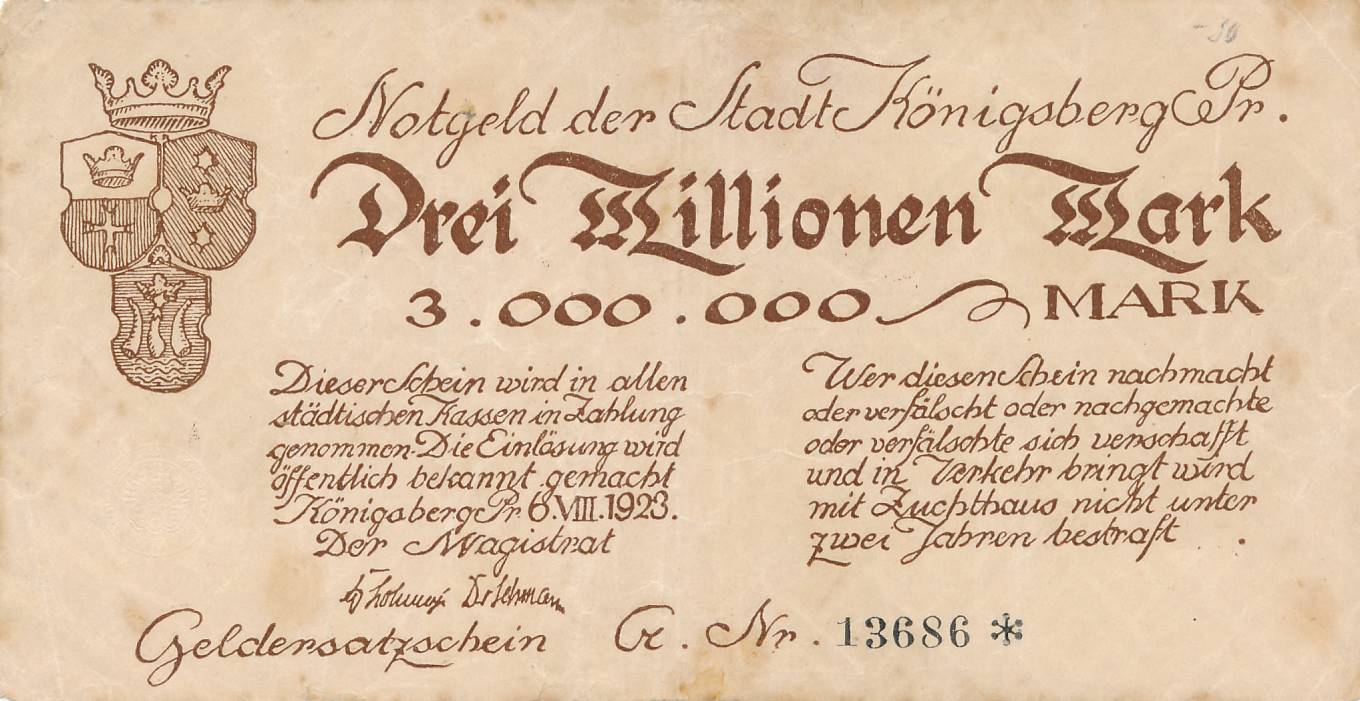 Notgeld der Stadt Königsberg Pr.
Drei Millionen Mark
3.000.000 MARK
Dieser Schein wird in allen
städtischen Kassen in Zahlung
genommen. Die Einlösung wird
öffentlich bekannt gemacht
Königsberg Pr. 6.VIII.1923.
Der Magistrat
Wer diesen Schein nachmacht
oder verfälscht oder nachgemachte
oder verfälschte sich verschafft
und in Verkehr bringt wird
mit Zuchthaus nicht unter
zwei Jahren bestraft .
Geldersatzschein G. Nr. 13686 *